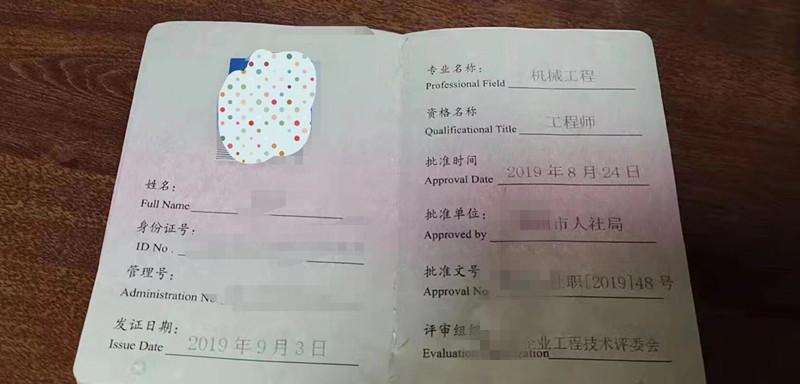 姓名:
Full Name
身份证号:
ID No.
管理号:
Administration No.
发证日期:
Issue Date 2019 年 9 月 3 日
专业名称:
Professional Field 机械工程
资格名称
Qualificational Title 工程师
批准时间
Approval Date 2019 年 8 月 24 日
批准单位:
Approved by 市人社局
批准文号
Approval No 职[2019]48 号
评审组
Evaluation 企业工程技术评委会